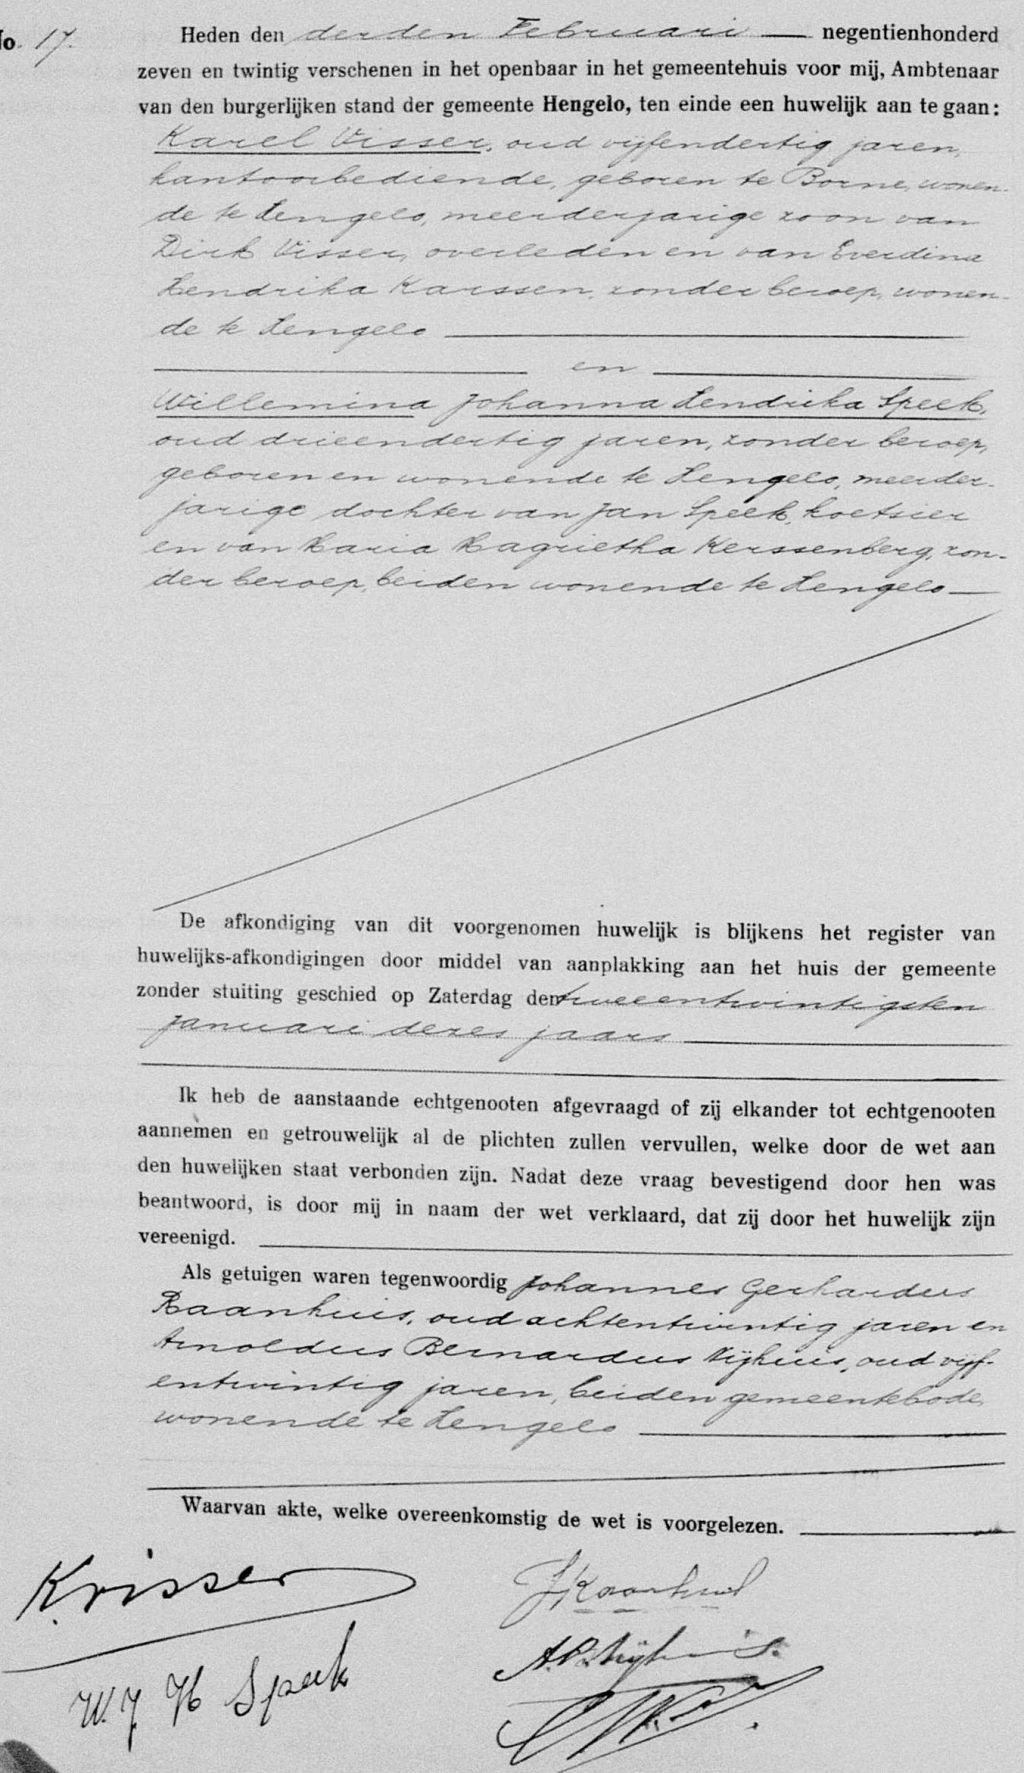 No. 17. Heden den derden Februari negentienhonderd
zeven en twintig verschenen in het openbaar in het gemeentehuis voor mij, Ambtenaar
van den burgerlijken stand der gemeente Hengelo, ten einde een huwelijk aan te gaan:
Karel Visser, oud vijfendertig jaren,
kantoorbediende, geboren te Borne, wonen-
de te Hengelo, meerderjarige zoon van
Dirk Visser, overleden en van Everdina
Hendrika Karssen, zonder beroep, wonen-
de te Hengelo
en
Willemina Johanna Hendrika Speek,
oud drieendertig jaren, zonder beroep,
geboren en wonende te Hengelo, meerder-
jarige dochter van Jan Speek, koetsier
en van Maria Magrietha Kerssenberg, zon-
der beroep, beiden wonende te Hengelo
De afkondiging van dit voorgenomen huwelijk is blijkens het register van
huwelijks-afkondigingen door middel van aanplakking aan het huis der gemeente
zonder stuiting geschied op Zaterdag den tweeentwintigsten
Januari dezes jaars
Ik heb de aanstaande echtgenooten afgevraagd of zij elkander tot echtgenooten
aannemen en getrouwelijk al de plichten zullen vervullen, welke door de wet aan
den huwelijken staat verbonden zijn. Nadat deze vraag bevestigend door hen was
beantwoord, is door mij in naam der wet verklaard, dat zij door het huwelijk zijn
vereenigd.
Als getuigen waren tegenwoordig Johannes Gerhardus
Raanhuis, oud achtentwintig jaren en
Arnoldus Bernardus Nijhuis, oud vijf-
entwintig jaren, beiden gemeentebode,
wonende te Hengelo
Waarvan akte, welke overeenkomstig de wet is voorgelezen.
K. Visser
J Raanhuis
W. J H Speek
A.B. Nijhuis.